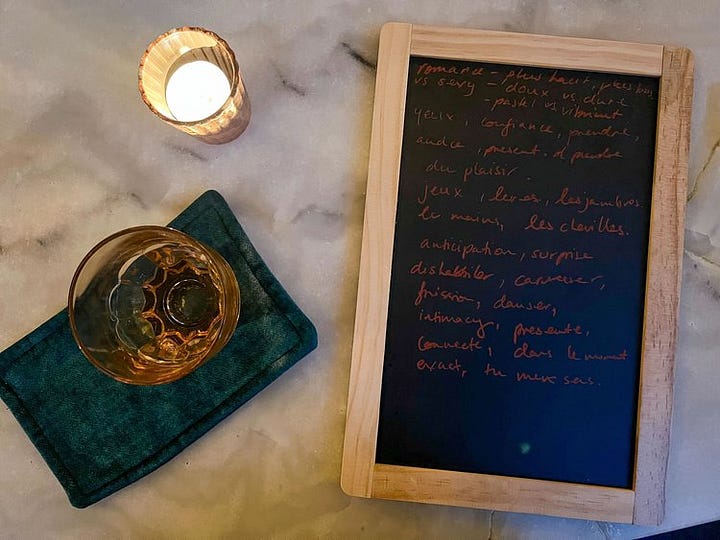 romance - plus haut, plus bas
vs sexy - doux vs dure
- pastel vs vibrant
yeux, confiance, prendre,
audce, present. prendre
du plaisir.
jeux, levres, les jambres
le mains, les chevilles.
anticipation, surprise
carresser,
frission, danser,
intimacy, presente,
connecte, dans le moment
exact, tu sens.